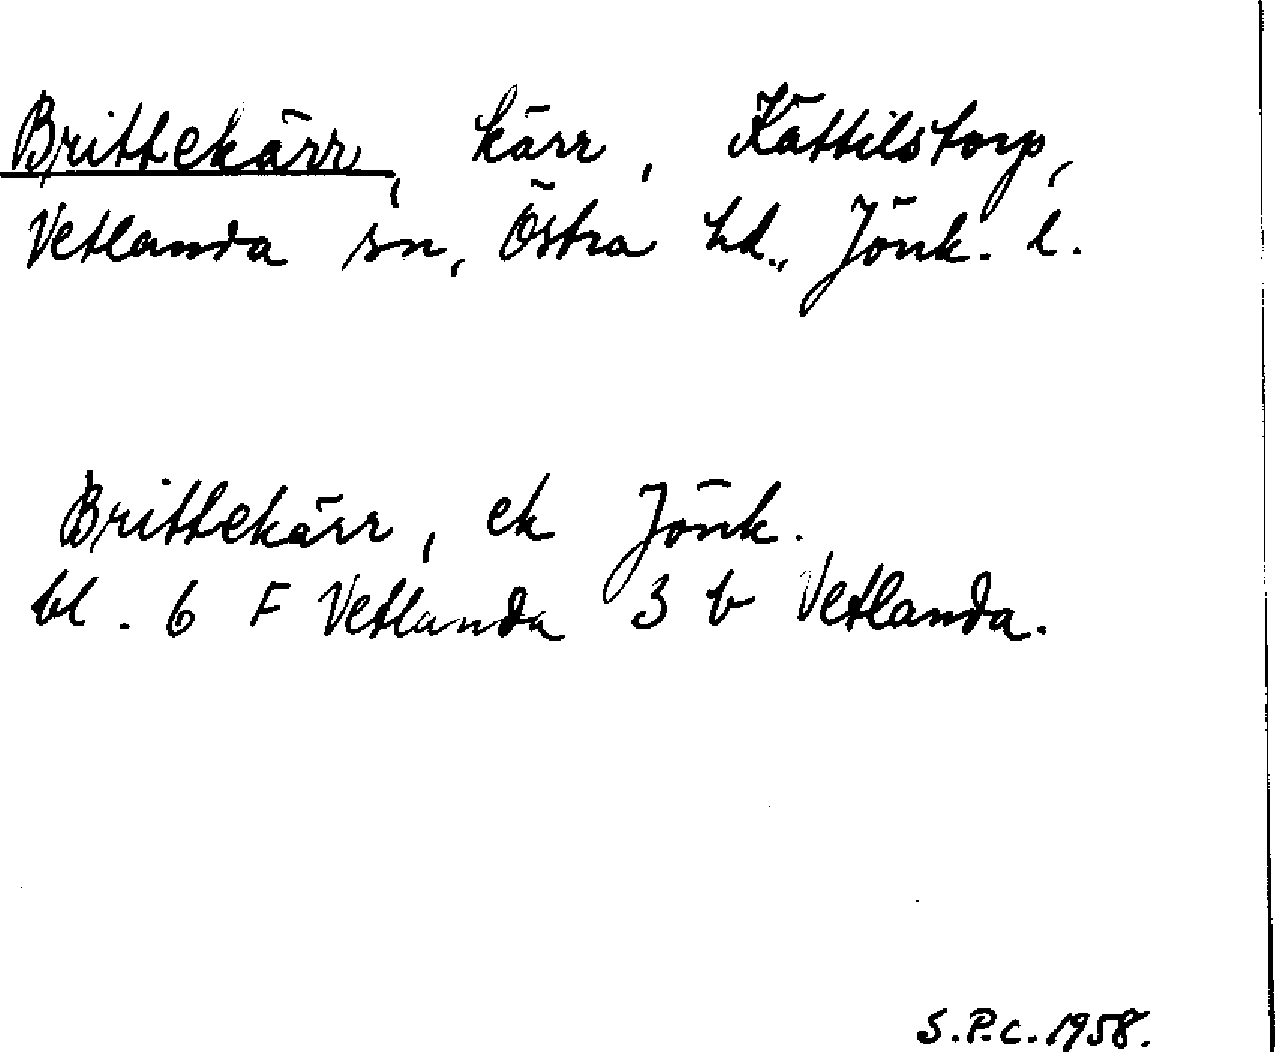 Brittekärr, kärr, Kättilstorp,
Vetlanda sn, Östra hd., Jönk. l.
Brittekärr, ek Jönk.
bl. 6 F Vetlanda 3 b Vetlanda.
S.P.C. 1958.